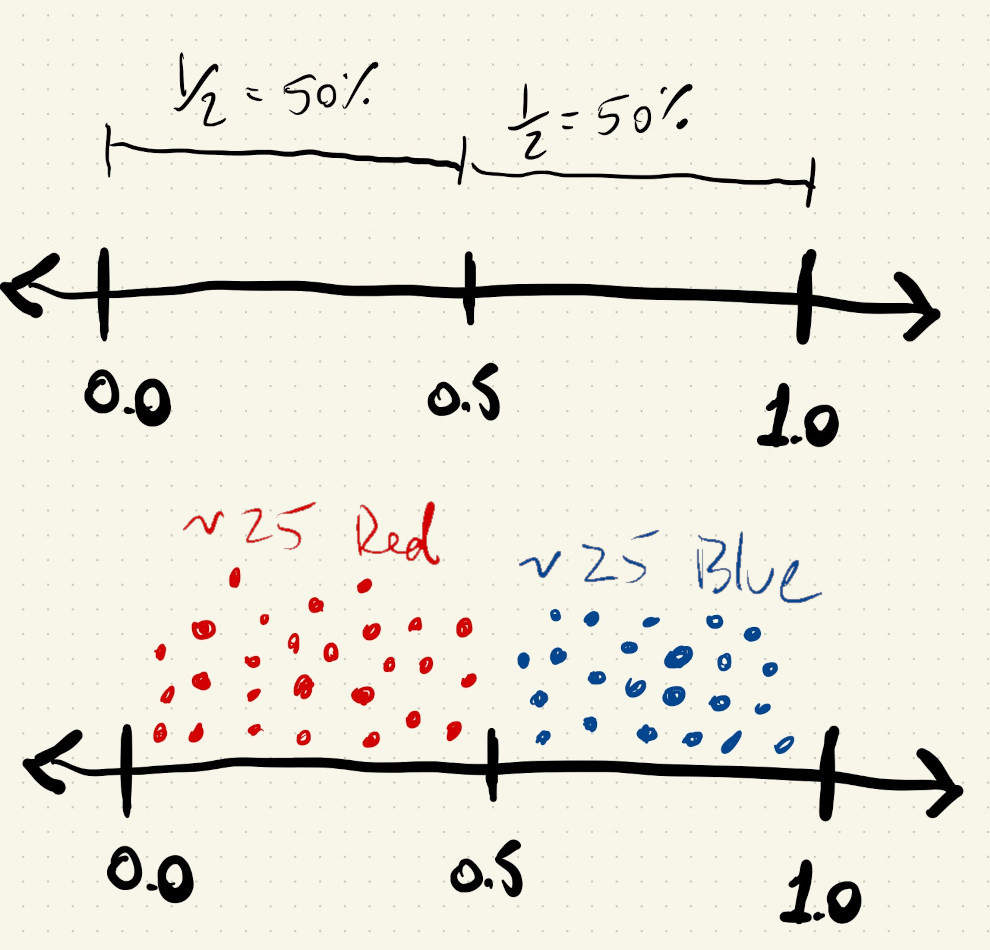 1/2 = 50%
1/2 = 50%
0.0
0.5
1.0
~ 25 Red
~ 25 Blue
0.0
0.5
1.0